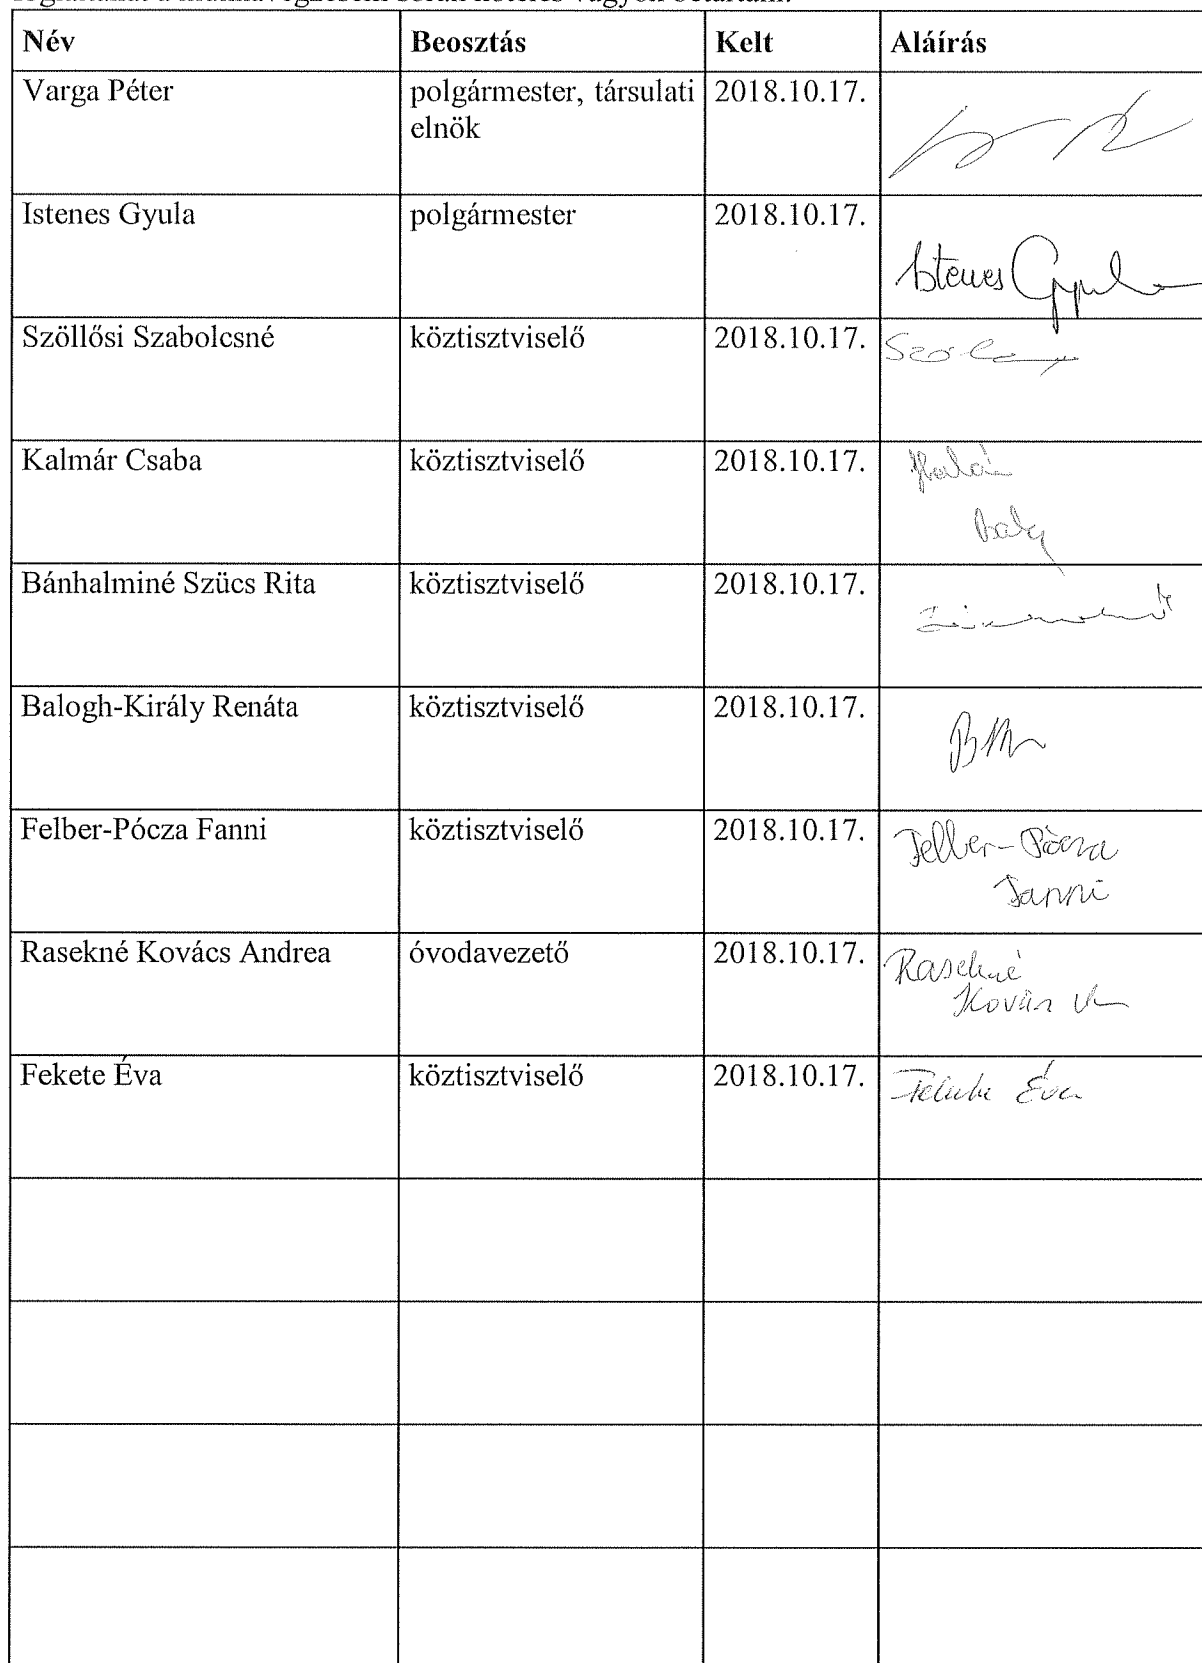 foglaltakat a munkavégzésem során köteles vagyok betartani.
Név Beosztás Kelt Aláírás
Varga Péter polgármester, társulati 2018.10.17.
elnök
Istenes Gyula polgármester 2018.10.17.
Istenes Gyula
Szöllősi Szabolcsné köztisztviselő 2018.10.17.
Kalmár Csaba köztisztviselő 2018.10.17.
Bánhalminé Szücs Rita köztisztviselő 2018.10.17.
Balogh-Király Renáta köztisztviselő 2018.10.17.
Felber-Pócza Fanni köztisztviselő 2018.10.17.
Felber-Pócza
Fanni
Rasekné Kovács Andrea óvodavezető 2018.10.17.
Rasekné
Kovács
Fekete Éva köztisztviselő 2018.10.17. Fekete Éva